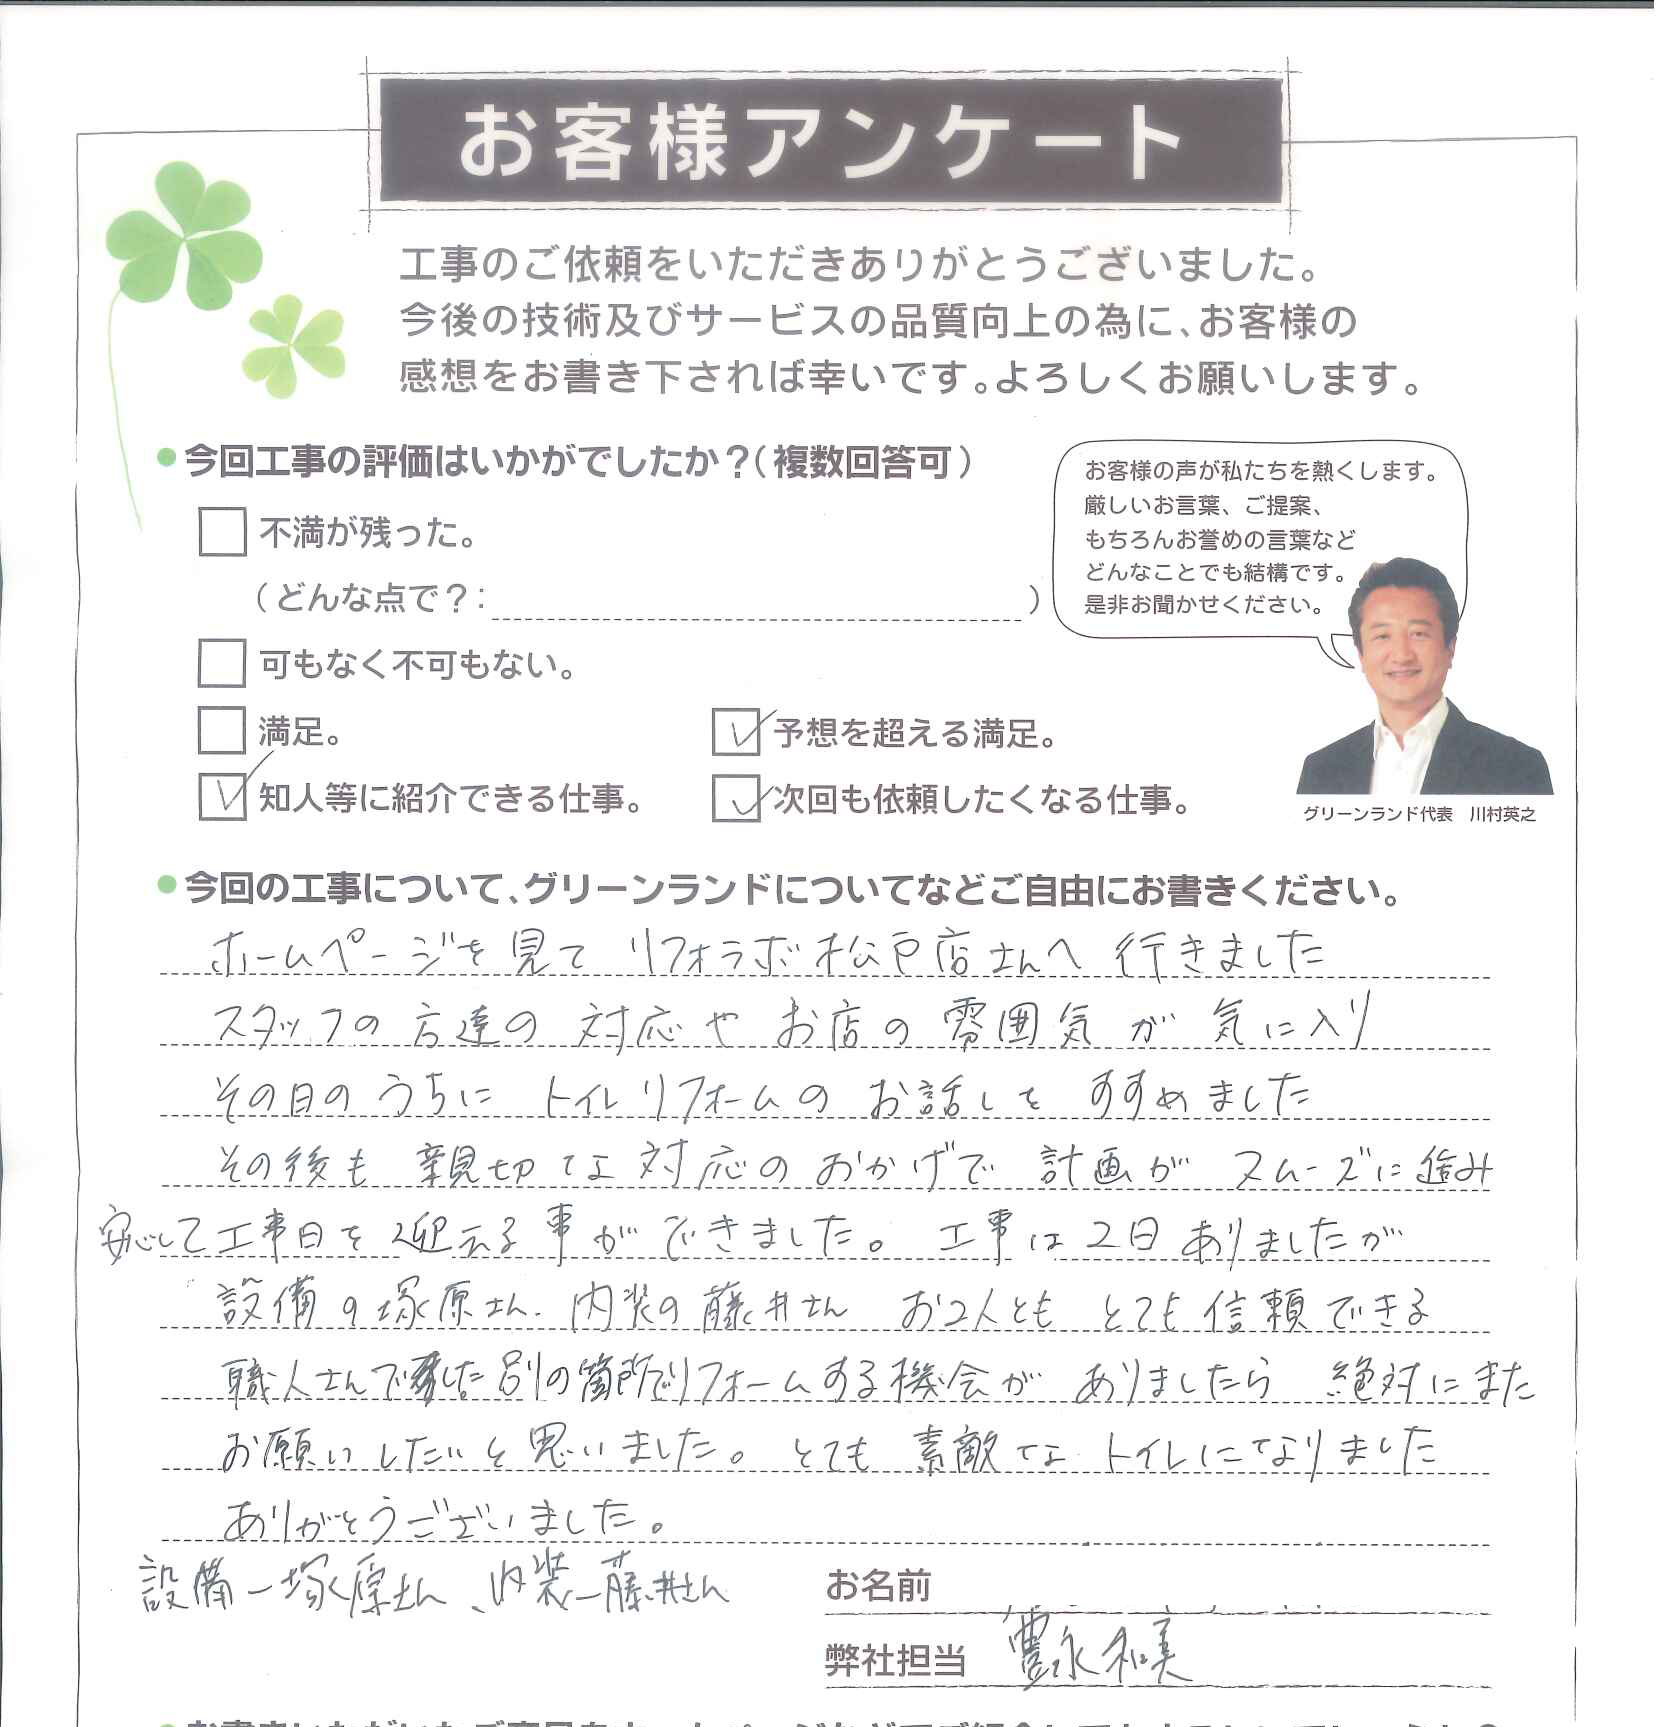 お客様アンケート
工事のご依頼をいただきありがとうございました。
今後の技術及びサービスの品質向上の為に、お客様の
感想をお書き下されば幸いです。よろしくお願いします。
今回工事の評価はいかがでしたか？(複数回答可)
お客様の声が私たちを熱くします。
厳しいお言葉、ご提案、
もちろんお誉めの言葉など
どんなことでも結構です。
是非お聞かせください。
不満が残った。
(どんな点で？: )
可もなく不可もない。
満足。
予想を超える満足。
知人等に紹介できる仕事。
次回も依頼したくなる仕事。
グリーンランド代表 川村英之
今回の工事について、グリーンランドについてなどご自由にお書きください。
ホームページを見て リフォラボ松戸店さんへ 行きました
スタッフの 方達の 対応や お店の 雰囲気が 気に入り
その日の うちに トイレリフォームの お話しを すすめました
その後も 親切な 対応の おかげで 計画が スムーズに進み
安心して工事日を 迎える事が できました。 工事は 2日 ありましたが
設備の塚原さん、内装の藤井さん お2人とも とても信頼できる
職人さんでした。別の箇所でリフォームする機会が ありましたら 絶対にまた
お願いしたいと思いました。とても 素敵な トイレになりました
ありがとうございました。
設備ー塚原さん、内装ー藤井さん
お名前
弊社担当 豊永和美